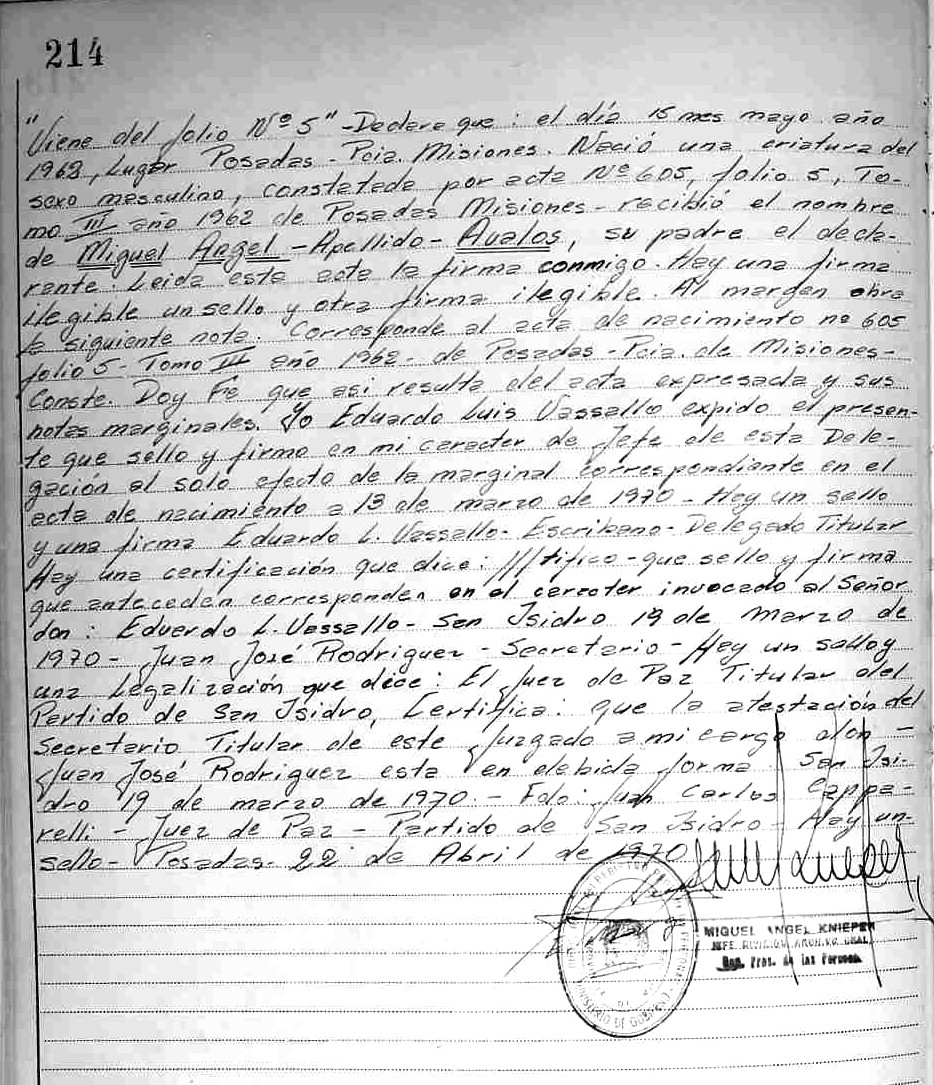 214
"Viene del folio Nº 5" - Declara que: el día 15 mes mayo año
1962, Lugar Posadas - Pcia. Misiones. Nació una criatura del
sexo masculino, constatada por acta Nº 605, folio 5, To-
mo III año 1962 de Posadas Misiones - recibió el nombre
de Miguel Angel - Apellido - Avalos, su padre el decla-
rante. Leida esta acta la firma conmigo. Hay una firma
ilegible un sello y otra firma ilegible. Al margen obra
la siguiente nota: Corresponde al acta de nacimiento nº 605
folio 5 - Tomo III año 1962 - de Posadas - Pcia. de Misiones -
Conste. Doy Fé que asi resulta del acta expresada y sus
notas marginales. Yo Eduardo Luis Vassallo expido el presen-
te que sello y firmo en mi caracter de Jefe de esta Dele-
gacion al solo efecto de la marginal correspondiente en el
acta de nacimiento a 13 de marzo de 1970 - Hay un sello
y una firma Eduardo L. Vassallo - Escribano - Delegado Titular
Hay una certificación que dice: ///tifico - que sello y firma
que anteceden corresponden en el caracter invocado al Señor
don: Eduardo L. Vassallo - San Isidro 19 de Marzo de
1970 - Juan José Rodriguez - Secretario - Hay un sello y
una Legalización que dice: El Juez de Paz Titular del
Partido de San Isidro, Certifica: que la atestación del
Secretario Titular de este Juzgado a mi cargo don -
Juan José Rodriguez esta en debida forma. San Isi-
dro 19 de marzo de 1970. - Fdo: Juan Carlos Cappa-
relli - Juez de Paz - Partido de San Isidro - Hay un -
sello - Posadas - 22 de Abril de 1970
MIGUEL ANGEL KNIEPER
JEFE DIVISION ARCH. Y G. GRAL.
Reg. Prov. de las Personas
MINISTERIO DE GOBIERNO